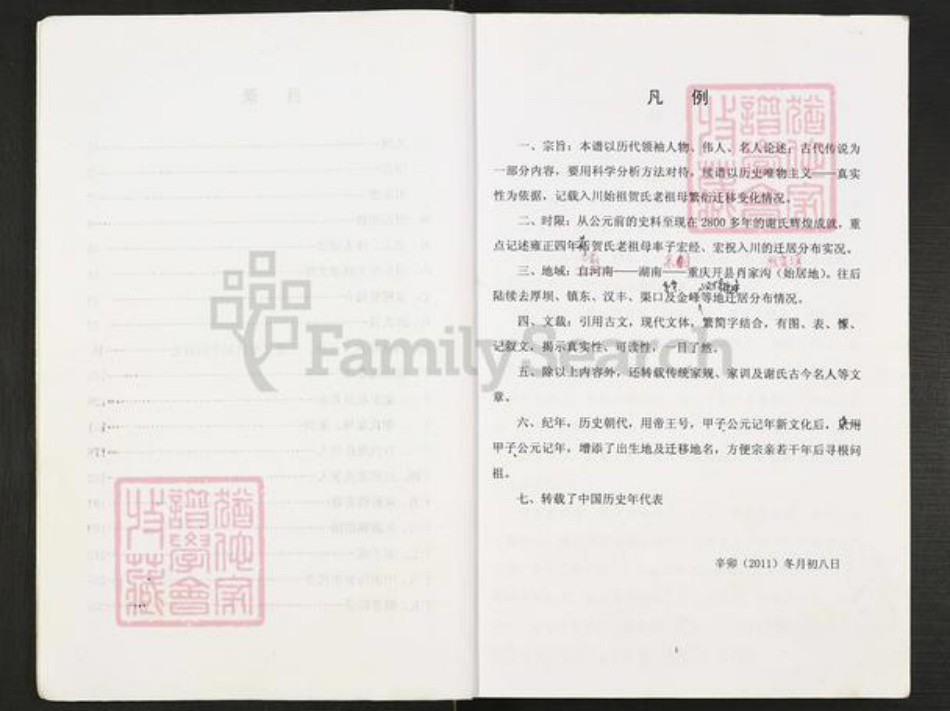 凡 例
一、宗旨：本谱以历代领袖人物、伟人、名人论述；古代传说为
一部分内容，要用科学分析方法对待，续谱以历史唯物主义——真实
性为依据，记载入川始祖贺氏老祖母繁衍迁移变化情况。
二、时限：从公元前的史料至现在2800多年的谢氏辉煌成就，重
点记述雍正四年 贺氏老祖母率子宏经、宏祝入川的迁居分布实况。
三、地域：自河南——湖南——重庆开县肖家沟（始居地）。往后
陆续去厚坝、镇东、汉丰、渠口及金峰等地迁居分布情况。
四、文裁：引用古文，现代文体，繁简字结合，有图、表、像、
记叙文，揭示真实性、可读性，一目了然。
五、除以上内容外，还转载传统家规、家训及谢氏古今名人等文
章。
六、纪年，历史朝代，用帝王号，甲子公元记年新文化后，采用
甲子公元记年，增添了出生地及迁移地名，方便宗亲若干年后寻根问
祖。
七、转载了中国历史年代表
辛卯（2011）冬月初八日
FamilySearch
猶他家
譜學會
收藏
猶他家
譜學會
收藏